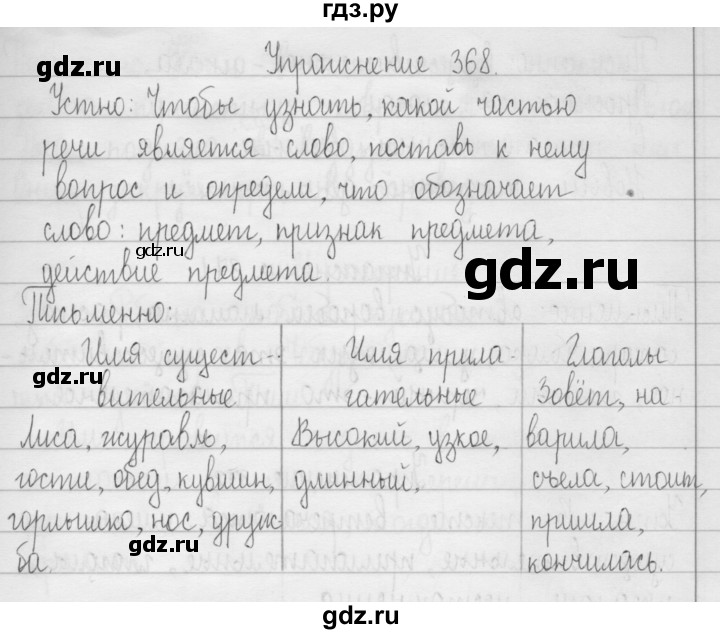 гдз.ру
gdz.ru
Упражнение 368.
Устно: Чтобы узнать, какой частью
речи является слово, поставь к нему
вопрос и определи, что обозначает
слово: предмет, признак предмета,
gdz.ru
gdz.ru
действие предмета
Письменно:
Имя сущест-
вительные
Имя прила-
гательные
Глаголы
gdz.ru
Лиса, журавль,
гости, обед, кувшин,
горлышко, нос, друж-
ба.
Высокий, узкое,
длинный,
Зовёт, на-
варила,
съела, стоит,
пришла,
кончилась.
gdz.ru
gdz.ru
gdz.ru